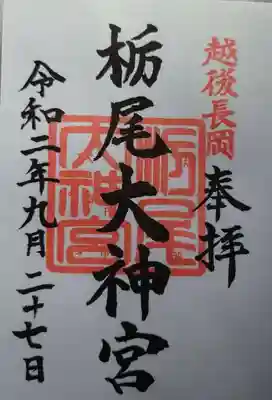 越後長岡
奉拝
栃尾大神宮
栃尾大神宮
令和二年九月二十七日